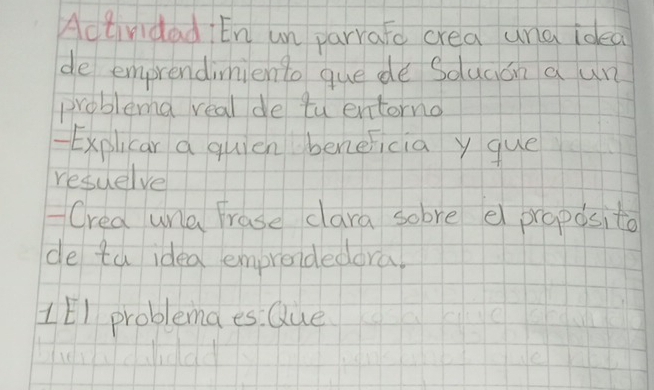 Actividad: En un parrafo crea una idea
de emprendimiento que dé Solución a un
problema real de tu entorno
-Explicar a quien beneficia y que
resuelve
-Crea una frase clara sobre el propósito
de tu idea emprendedora.
1 El problema es: Que